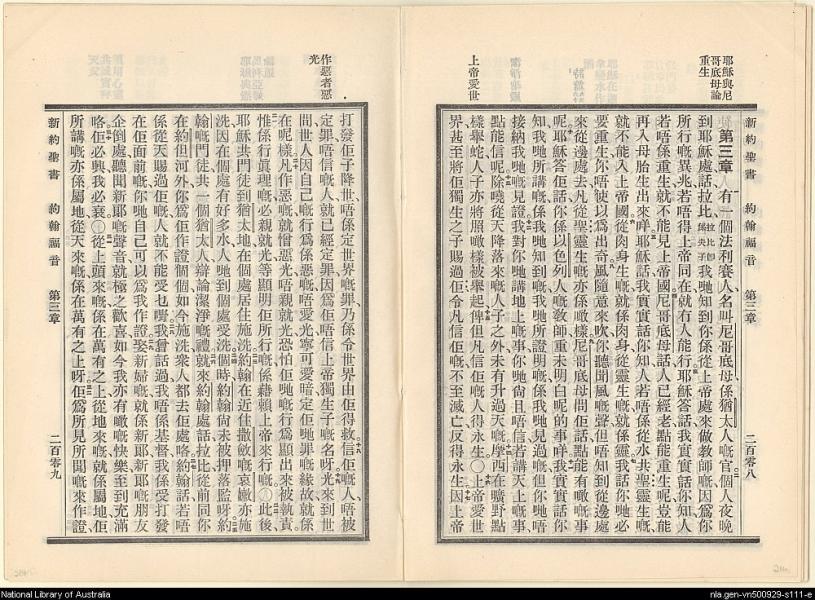 耶穌與尼
哥底母論
重生
上帝愛世
新約聖書 約翰福音 第三章 二百零八
第三章 有一個法利賽人名叫尼哥底母係猶太人嘅官個人夜晚
到耶穌處話拉比 拉比即係夫子 我哋知到你係從上帝處來做教師嘅因爲你
所行嘅異兆若唔得上帝同在就有人能行耶穌答話我實實話你知人
若唔係重生就不能見上帝國尼哥底母話人已經老點能重生呢豈能
再入母胎生出來咩耶穌話我實實話你知人若唔係從水共聖靈生嘅
就不能入上帝國從肉身生嘅就係肉身從靈生嘅就係靈我話你哋必
要重生你唔使以爲出奇風隨意來吹你聽聞風嘅聲但唔知到從邊處
來從邊處去凡從聖靈生嘅亦係噉樣尼哥底母問佢話點能有噉嘅事
呢耶穌答佢話你係以色列人嘅教師重未明白呢的事咩我實實話你
知我哋所講嘅係我哋知到嘅我哋所證明嘅係我哋見過嘅但你哋唔
接納我哋嘅見證我對你哋講地上嘅事你哋尚且唔信若講天上嘅事
點能信呢除曉從天降落來嘅人子之外未有升過天嘅摩西在曠野點
樣舉蛇人子亦將照噉樣被舉起俾但凡信佢嘅人得永生〇上帝愛世
界甚至將佢獨生之子賜過佢令凡信佢嘅不至滅亡反得永生因上帝
作惡者惡
光
打發佢子降世唔係定世界嘅罪乃係令世界由佢得救信佢嘅人唔被
定罪唔信嘅人就已經定罪因爲佢唔信上帝獨生子嘅名呀光來到世
間世人因自己嘅行爲係惡嘅唔愛光寧可愛暗定佢哋罪嘅緣故就係
在呢樣凡作惡嘅就憎惡光唔親就光恐怕佢哋嘅行爲顯出來被執責
惟係行眞理嘅必親就光等顯明佢所行嘅係藉賴上帝來行嘅〇此後
耶穌共門徒到猶太地在個處居住施洗約翰在近住撒𠾍嘅哀嫩亦施
洗因在個處有好多水人哋到個處受洗個時約翰尙未被押落監呀約
翰嘅門徒共一個猶太人辯論潔淨嘅禮就來約翰處話拉比從前同你
在約但河外你爲佢作證個個如今施洗衆人都去佢處咯約翰話若唔
係從天賜過佢嘅人就不能受乜嘢我曾話過我唔係基督我係受打發
在佢面前嘅你哋自己可以爲我作證娶新婦嘅就係新郎新郎嘅朋友
企倒處聽聞新郎嘅聲音就極之歡喜如今我亦有噉嘅快樂至到充滿
咯佢必興我必衰〇從上頭來嘅係在萬有之上從地來嘅就係屬地佢
所講嘅亦係屬地從天來嘅係在萬有之上呀佢爲所見所聞嘅來作證
新約聖書 約翰福音 第三章 二百零九
National Library of Australia
nla.gen-vn500929-s111-e